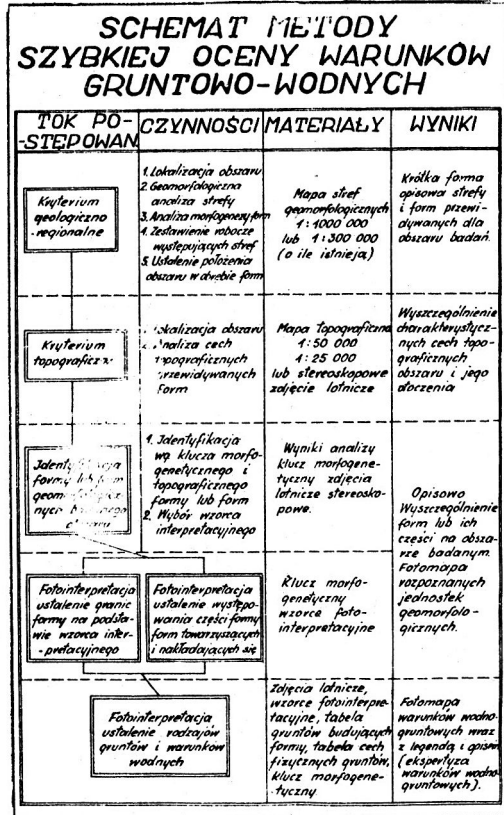 SCHEMAT METODY
SZYBKIEJ OCENY WARUNKÓW
GRUNTOWO-WODNYCH
TOK PO-
-STĘPOWAN.
CZYNNOŚCI
MATERIAŁY
WYNIKI
Kryterium
geologiczno
-regionalne
1. Lokalizacja obszaru
2. Geomorfologiczna
analiza strefy
3. Analiza morfogenezy form
4. Zestawienie robocze
występujących stref
5. Ustalenie położenia
obszaru w obrębie form
Mapa stref
geomorfologicznych
1:1000 000
lub 1:300 000
(o ile istnieją)
Krótka forma
opisowa strefy
i form przewi-
dywanych dla
obszaru badań.
Kryterium
topograficz
Lokalizacja obszaru
Analiza cech
topograficznych
przewidywanych
form
Mapa topograficzna
1:50 000
1:25 000
lub stereoskopowe
zdjęcie lotnicze
Wyszczególnienie
charakterystycz-
nych cech topo-
graficznych
obszaru i jego
otoczenia
Identyfikacja
formy lub form
geomorfologicz-
nych
obszaru
1. Identyfikacja
wg klucza morfo-
genetycznego i
topograficznego
formy lub form
2. Wybór wzorca
interpretacyjnego
Wyniki analizy
klucz morfogene-
tyczny zdjęcia
lotnicze stereosko-
powe.
Opisowo
Wyszczególnienie
form lub ich
części na obsza-
rze badanym.
Fotomapa
rozpoznanych
jednostek
geomorfolo-
gicznych.
Fotointerpretacja
ustalenie granic
formy na podsta-
wie wzorca inter-
-pretacyjnego
Fotointerpretacja
ustalenie występo-
wania części formy
form towarzyszących
i nakładających się
Klucz morfo-
genetyczny
wzorce foto-
interpretacyjne
Fotointerpretacja
ustalenie rodzajów
gruntów i warunków
wodnych
Zdjęcia lotnicze,
wzorce fotointerpre-
tacyjne, tabela
gruntów budujących
formy, tabela cech
fizycznych gruntów,
klucz morfogene-
tyczny
Fotomapa
warunków wodno-
gruntowych wraz
z legendą i opisem
(ekspertyza
warunków wodno-
gruntowych).